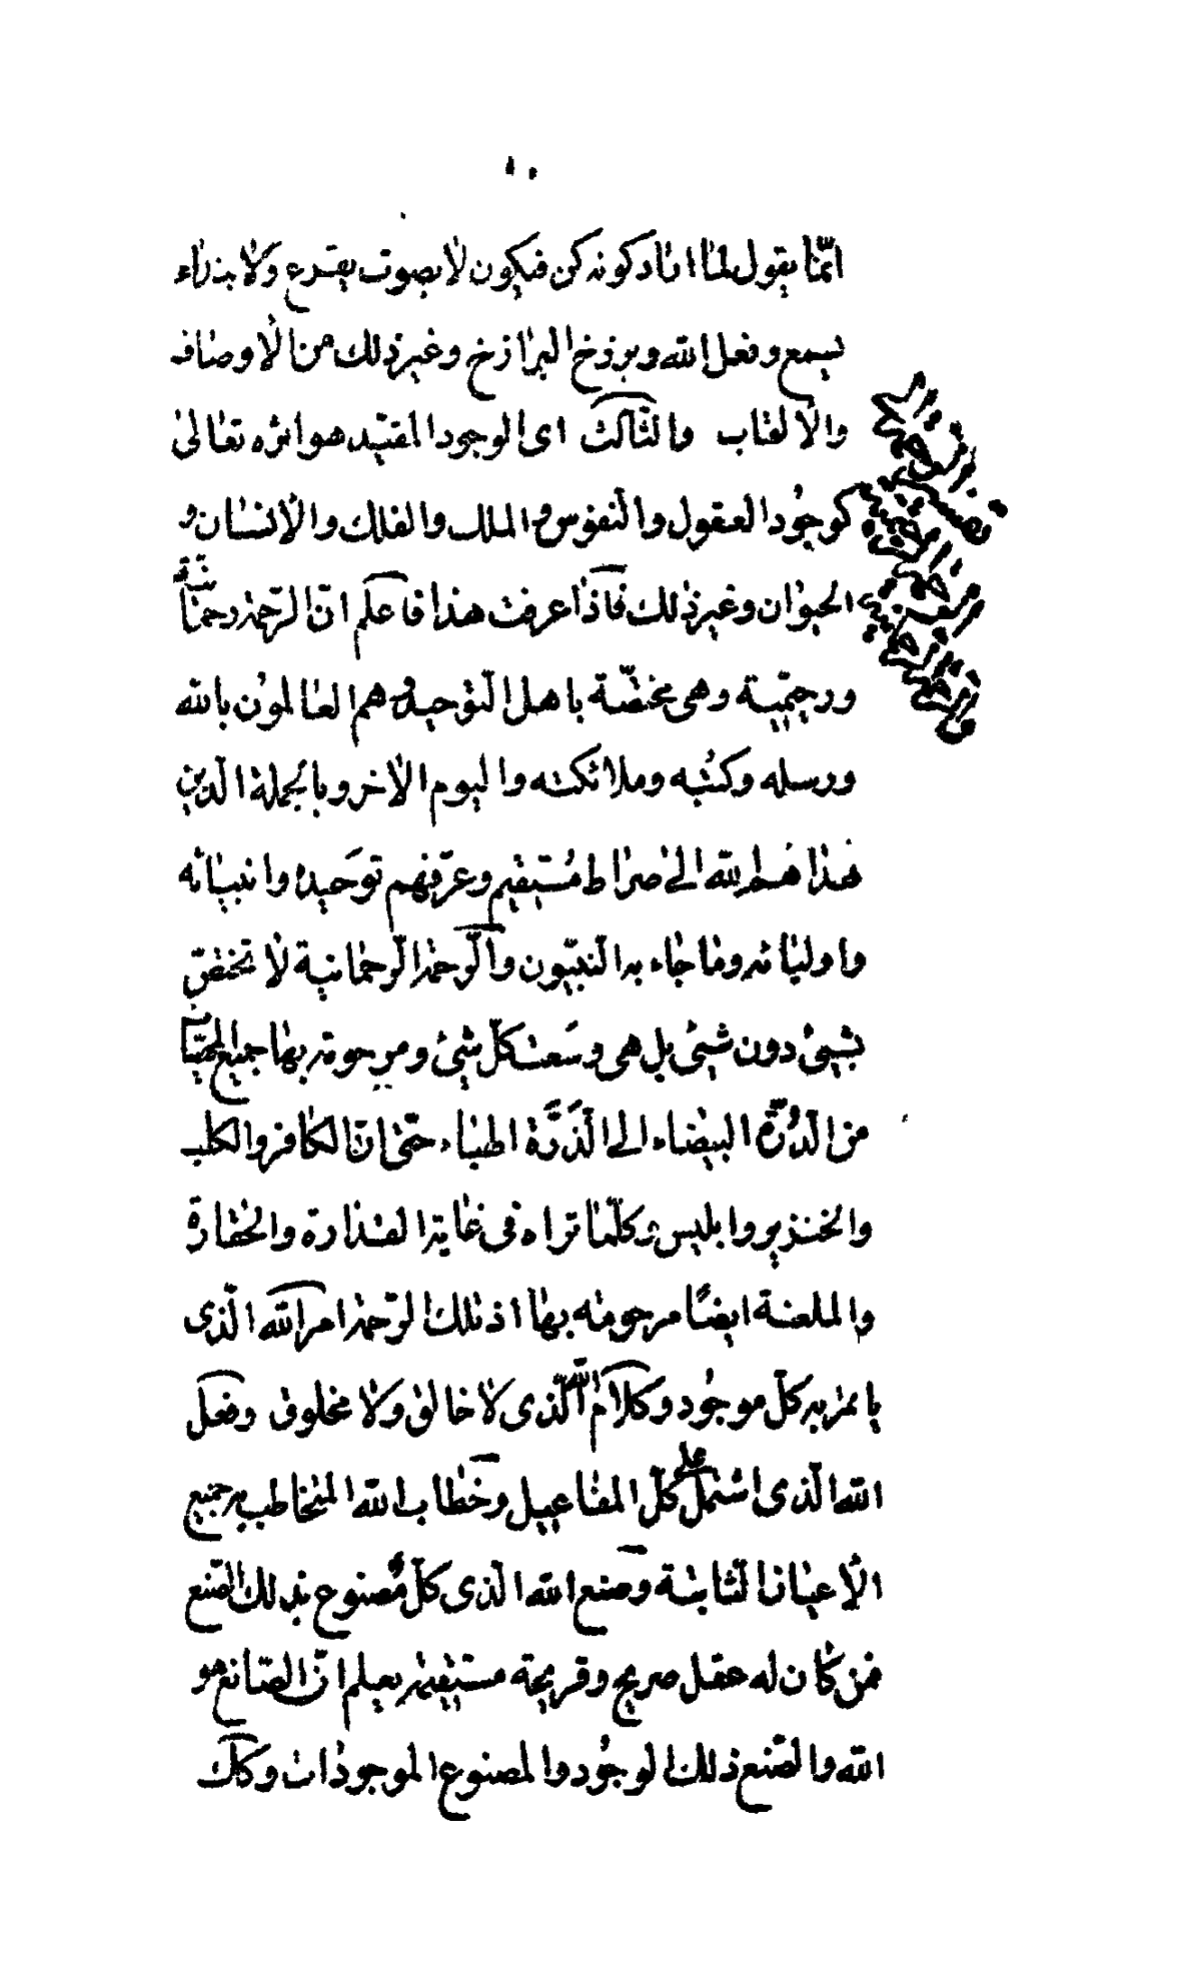 ١٠
انّما يقول لما اراد كونه كن فيكون لا بصوت يقرع ولا بنداء
يسمع وفعل الله وبرزخ البرازخ وغير ذلك من الاوصاف
والالقاب والثالث اى الوجود المقيّد هو اثره تعالى
كوجود العقول والنفوس والملك والفلك والانسان و
الحيوان وغير ذلك فاذا عرفت هذا فاعلم انّ الرّحمة رحمانيّة
ورحيميّة وهى مختصّة باهل التّوحيد وهم العالمون بالله
ورسله وكتبه وملائكته واليوم الاخر وبالجملة الّذين
هداهم الله الى صراط مستقيم وعرّفهم توحيده وانبيائه
واوليائه وما جاء به النبيّون والرّحمة الرّحمانية لا تختصّ
بشيئ دون شيئ بل هى وسعت كلّ شيئ ومرحومة بها جميع
من الدُّرّة البيضاء الى الذَّرَّة الهباء حتّى انّ الكافر والكلب
والخنزير وابليس وكلّما تراه فى غاية القذارة والحقارة
والملعنة ايضًا مرحومة بها اذ تلك الرّحمة امر الله الّذى
يأتمر به كلّ موجود وكلام الله الّذى لا خالق ولا مخلوق وفعل
الله الّذى اشتمل على كلّ المفاعيل وخطاب الله المتخاطب به جميع
الاعيان الثّابتة وصنع الله الّذى كلّ مصنوع بذلك الصّنع
فمن كان له عقل صريح وقريحة مستقيمة يعلم انّ الصّانع هو
الله والصّنع ذلك الوجود والمصنوع الموجودات وكلّ